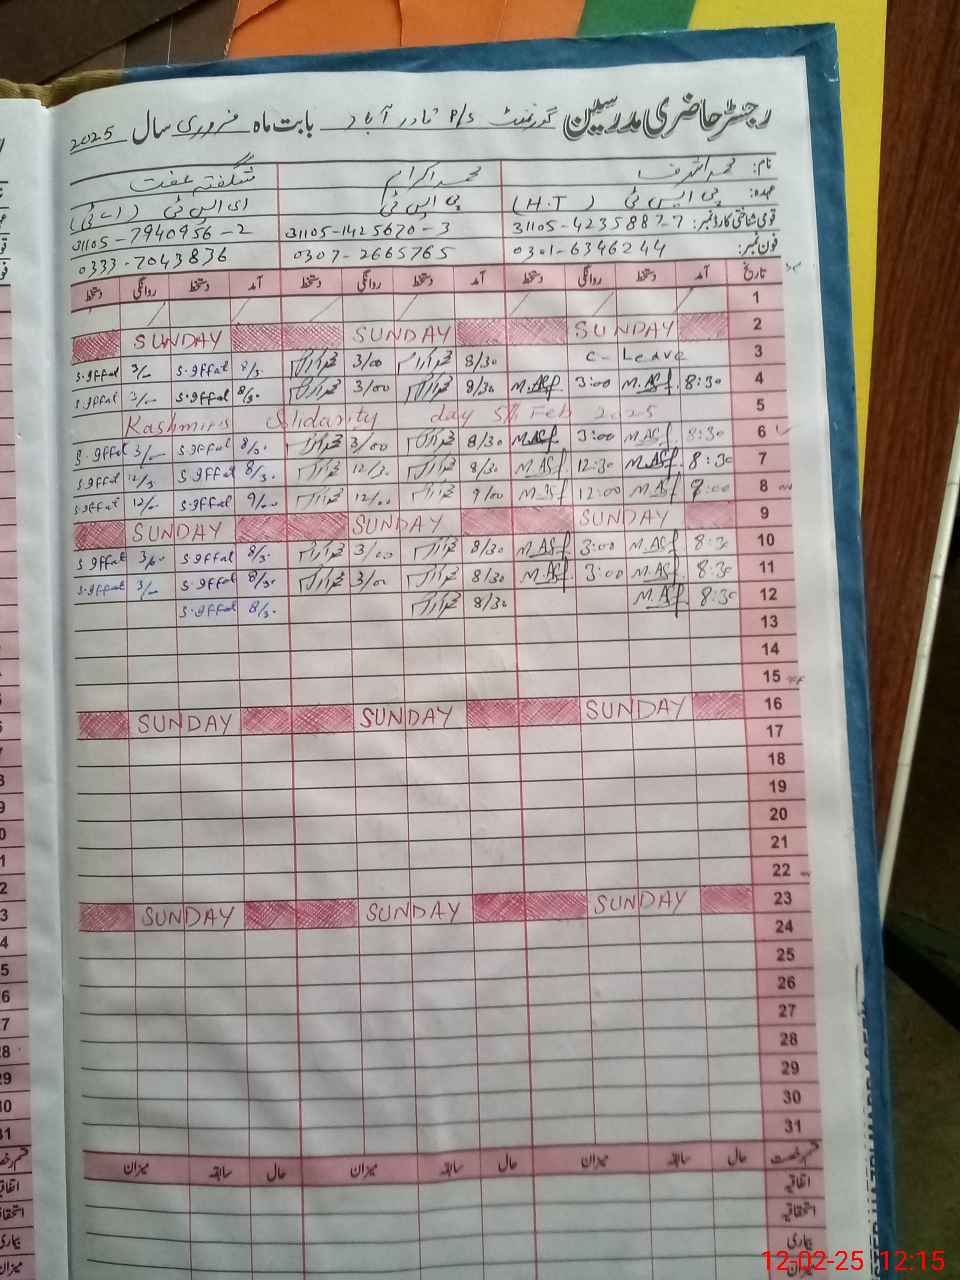 رجسٹر حاضری مدرسین گورنمنٹ P/S نادر آباد بابت ماہ فروری سال 2025
نام: محمد اشرف محمد اکرام شگفتہ عفت
عہدہ: پی ایس ٹی (H.T) پی ایس ٹی ای ایس ٹی (اے ٹی)
قومی شناختی کارڈ نمبر: 31105-4235887-7 31105-1425670-3 31105-7940956-2
فون نمبر: 0301-6346244 0307-2665765 0333-7043836
تاریخ آمد دستخط روانگی دستخط آمد دستخط روانگی دستخط آمد دستخط روانگی دستخط
1
2 SUNDAY SUNDAY SUNDAY
3 C-Leave 8/30 3/00 8/3. S.Iffat 3/- S.Iffat
4 8:30 M.ASf 3:00 M.ASf 8/30 3/00 8/3. S.Iffat 3/- S.Iffat
5 Kashmiris Slidarity day 5th Feb 2025
6 8:30 M.ASf 3:00 M.ASf 8/30 3/00 8/3. S.Iffat 3/- S.Iffat
7 8:30 M.ASf 12:30 M.ASf 8/30 12/30 8/3. S.Iffat 12/3 S.Iffat
8 9:00 M.ASf 12:00 M.ASf 9/00 12/00 9/00 S.Iffat 12/- S.Iffat
9 SUNDAY SUNDAY SUNDAY
10 8:30 M.ASf 3:00 M.ASf 8/30 3/00 8/3. S.Iffat 3/00 S.Iffat
11 8:30 M.ASf 3:00 M.ASf 8/30 3/00 8/30 S.Iffat 3/- S.Iffat
12 8:30 M.ASf 8/30 8/3. S.Iffat
13
14
15
16 SUNDAY SUNDAY SUNDAY
17
18
19
20
21
22
23 SUNDAY SUNDAY SUNDAY
24
25
26
27
28
29
30
31
قسم رخصت حال سابقہ میزان حال سابقہ میزان حال سابقہ میزان
اتفاقیہ
استحقاقیہ
بیماری
میزان
12-02-25 12:15